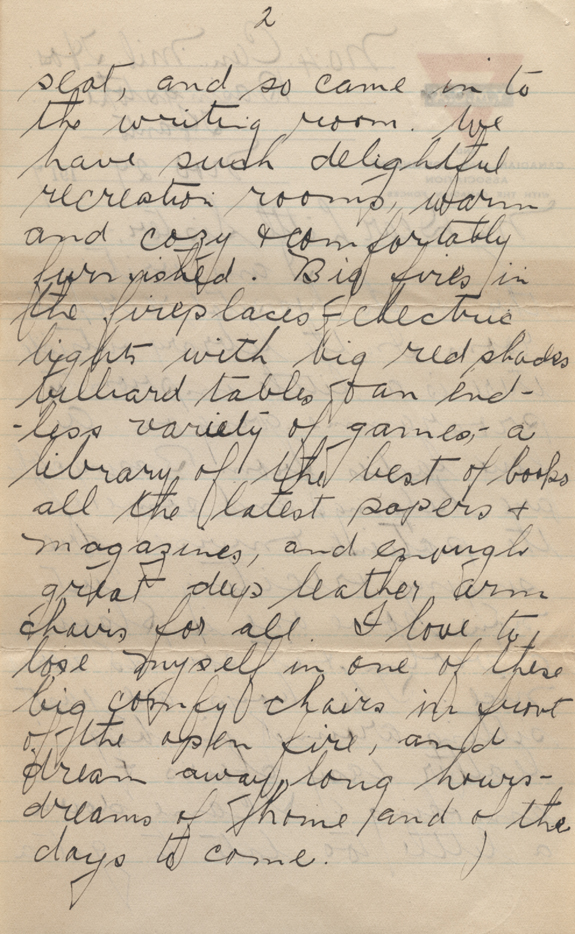 2
seat, and so came in to
the writing room. We
have such delightful
recreation rooms, warm
and cozy & comfortably
furnished. Big fires in
the fireplaces & electric
lights with big red shades
billiard tables & an end-
-less variety of games, - a
library of the best of books
all the latest papers &
magazines, and enough
great deep leather arm
chairs for all. I love to
lose myself in one of these
big comfy chairs in front
of the open fire, and
dream away long hours -
dreams of home and of the
days to come.